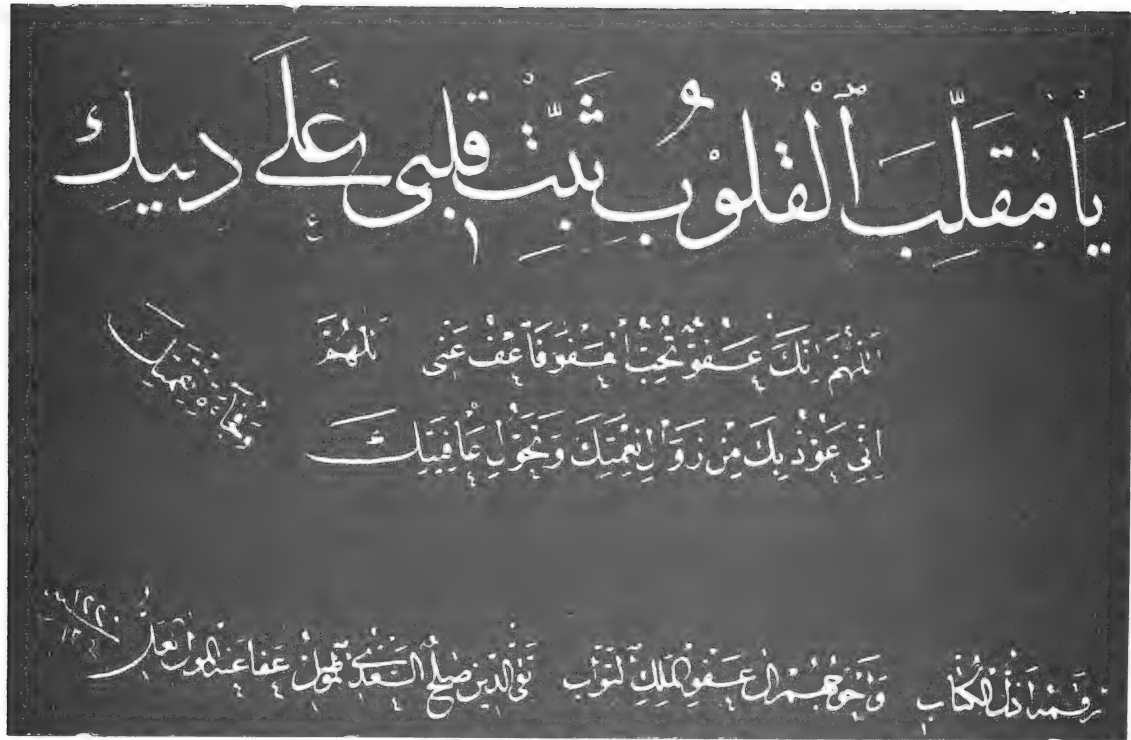 يَا مُقَلِّبَ ٱلْقُلُوْبِ ثَبِّتْ قَلْبِى عَلَى دِينِكَ
اَللّٰهُمَّ اِنَّكَ عَفُوٌّ تُحِبُّ الْعَفْوَ فَاعْفُ عَنِّى اَللّٰهُمَّ
اِنِّى اَعُوْذُ بِكَ مِنْ زَوَالِ نِعْمَتِكَ وَتَحَوُّلِ عَافِيَتِكَ
وَفُجَاءَةِ نِقْمَتِكَ
رقمه اذل الكتاب واحوجهم الى عفو الملك التواب تقى الدين صالح السعدى الموصلى عفا عنه المولى العلى